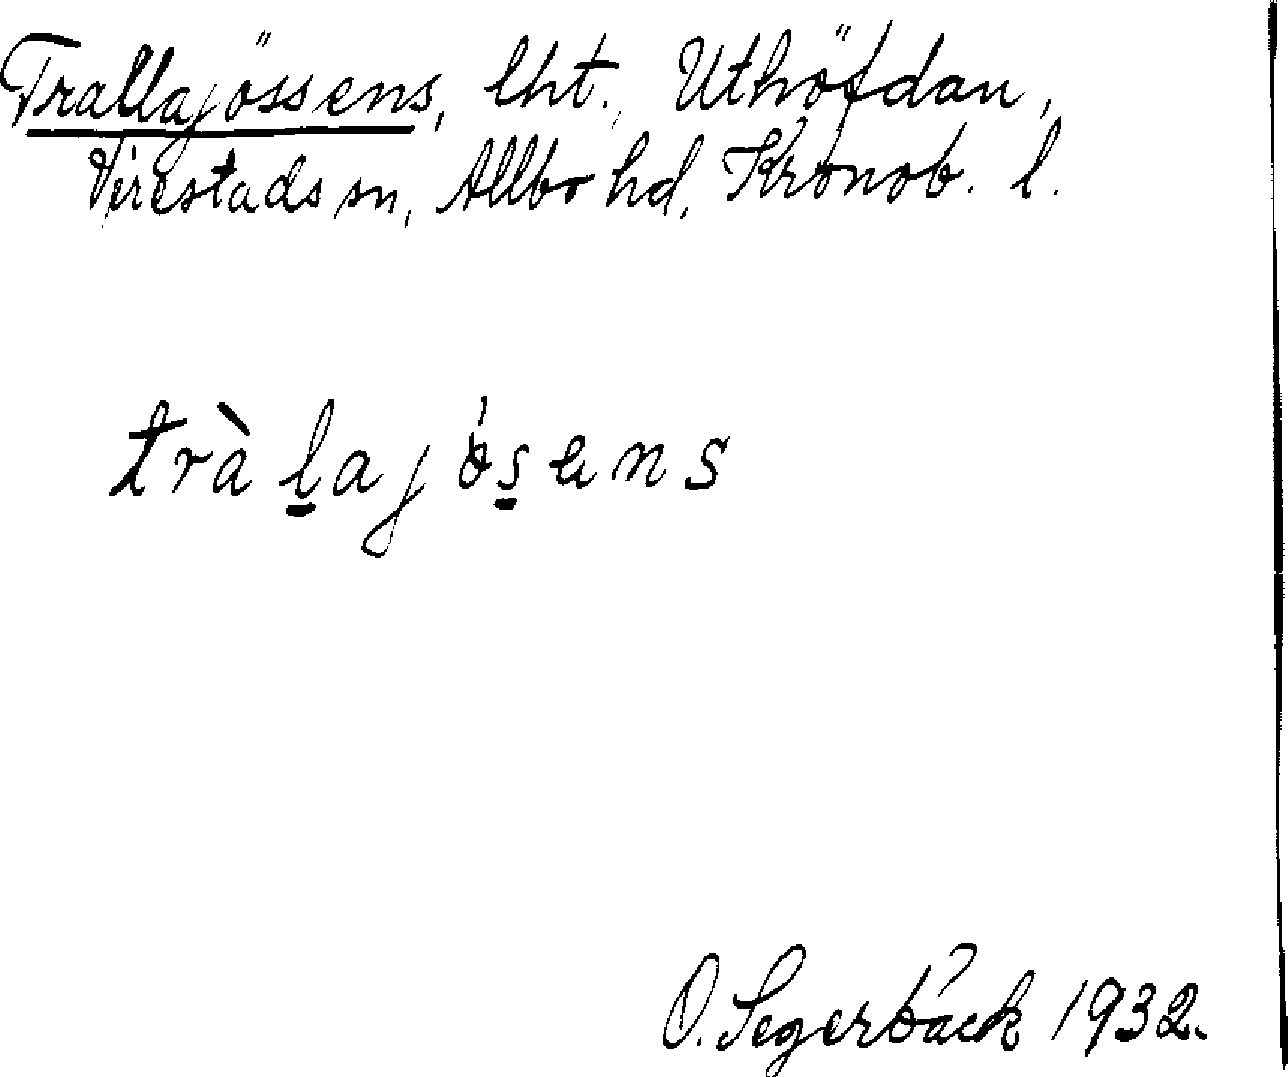 Trallajössens, lht., Uthöfdan,
Virestads sn, Allbo hd, Kronob. l.
tràl̲ajós̲ens
O. Segerbäck 1932.